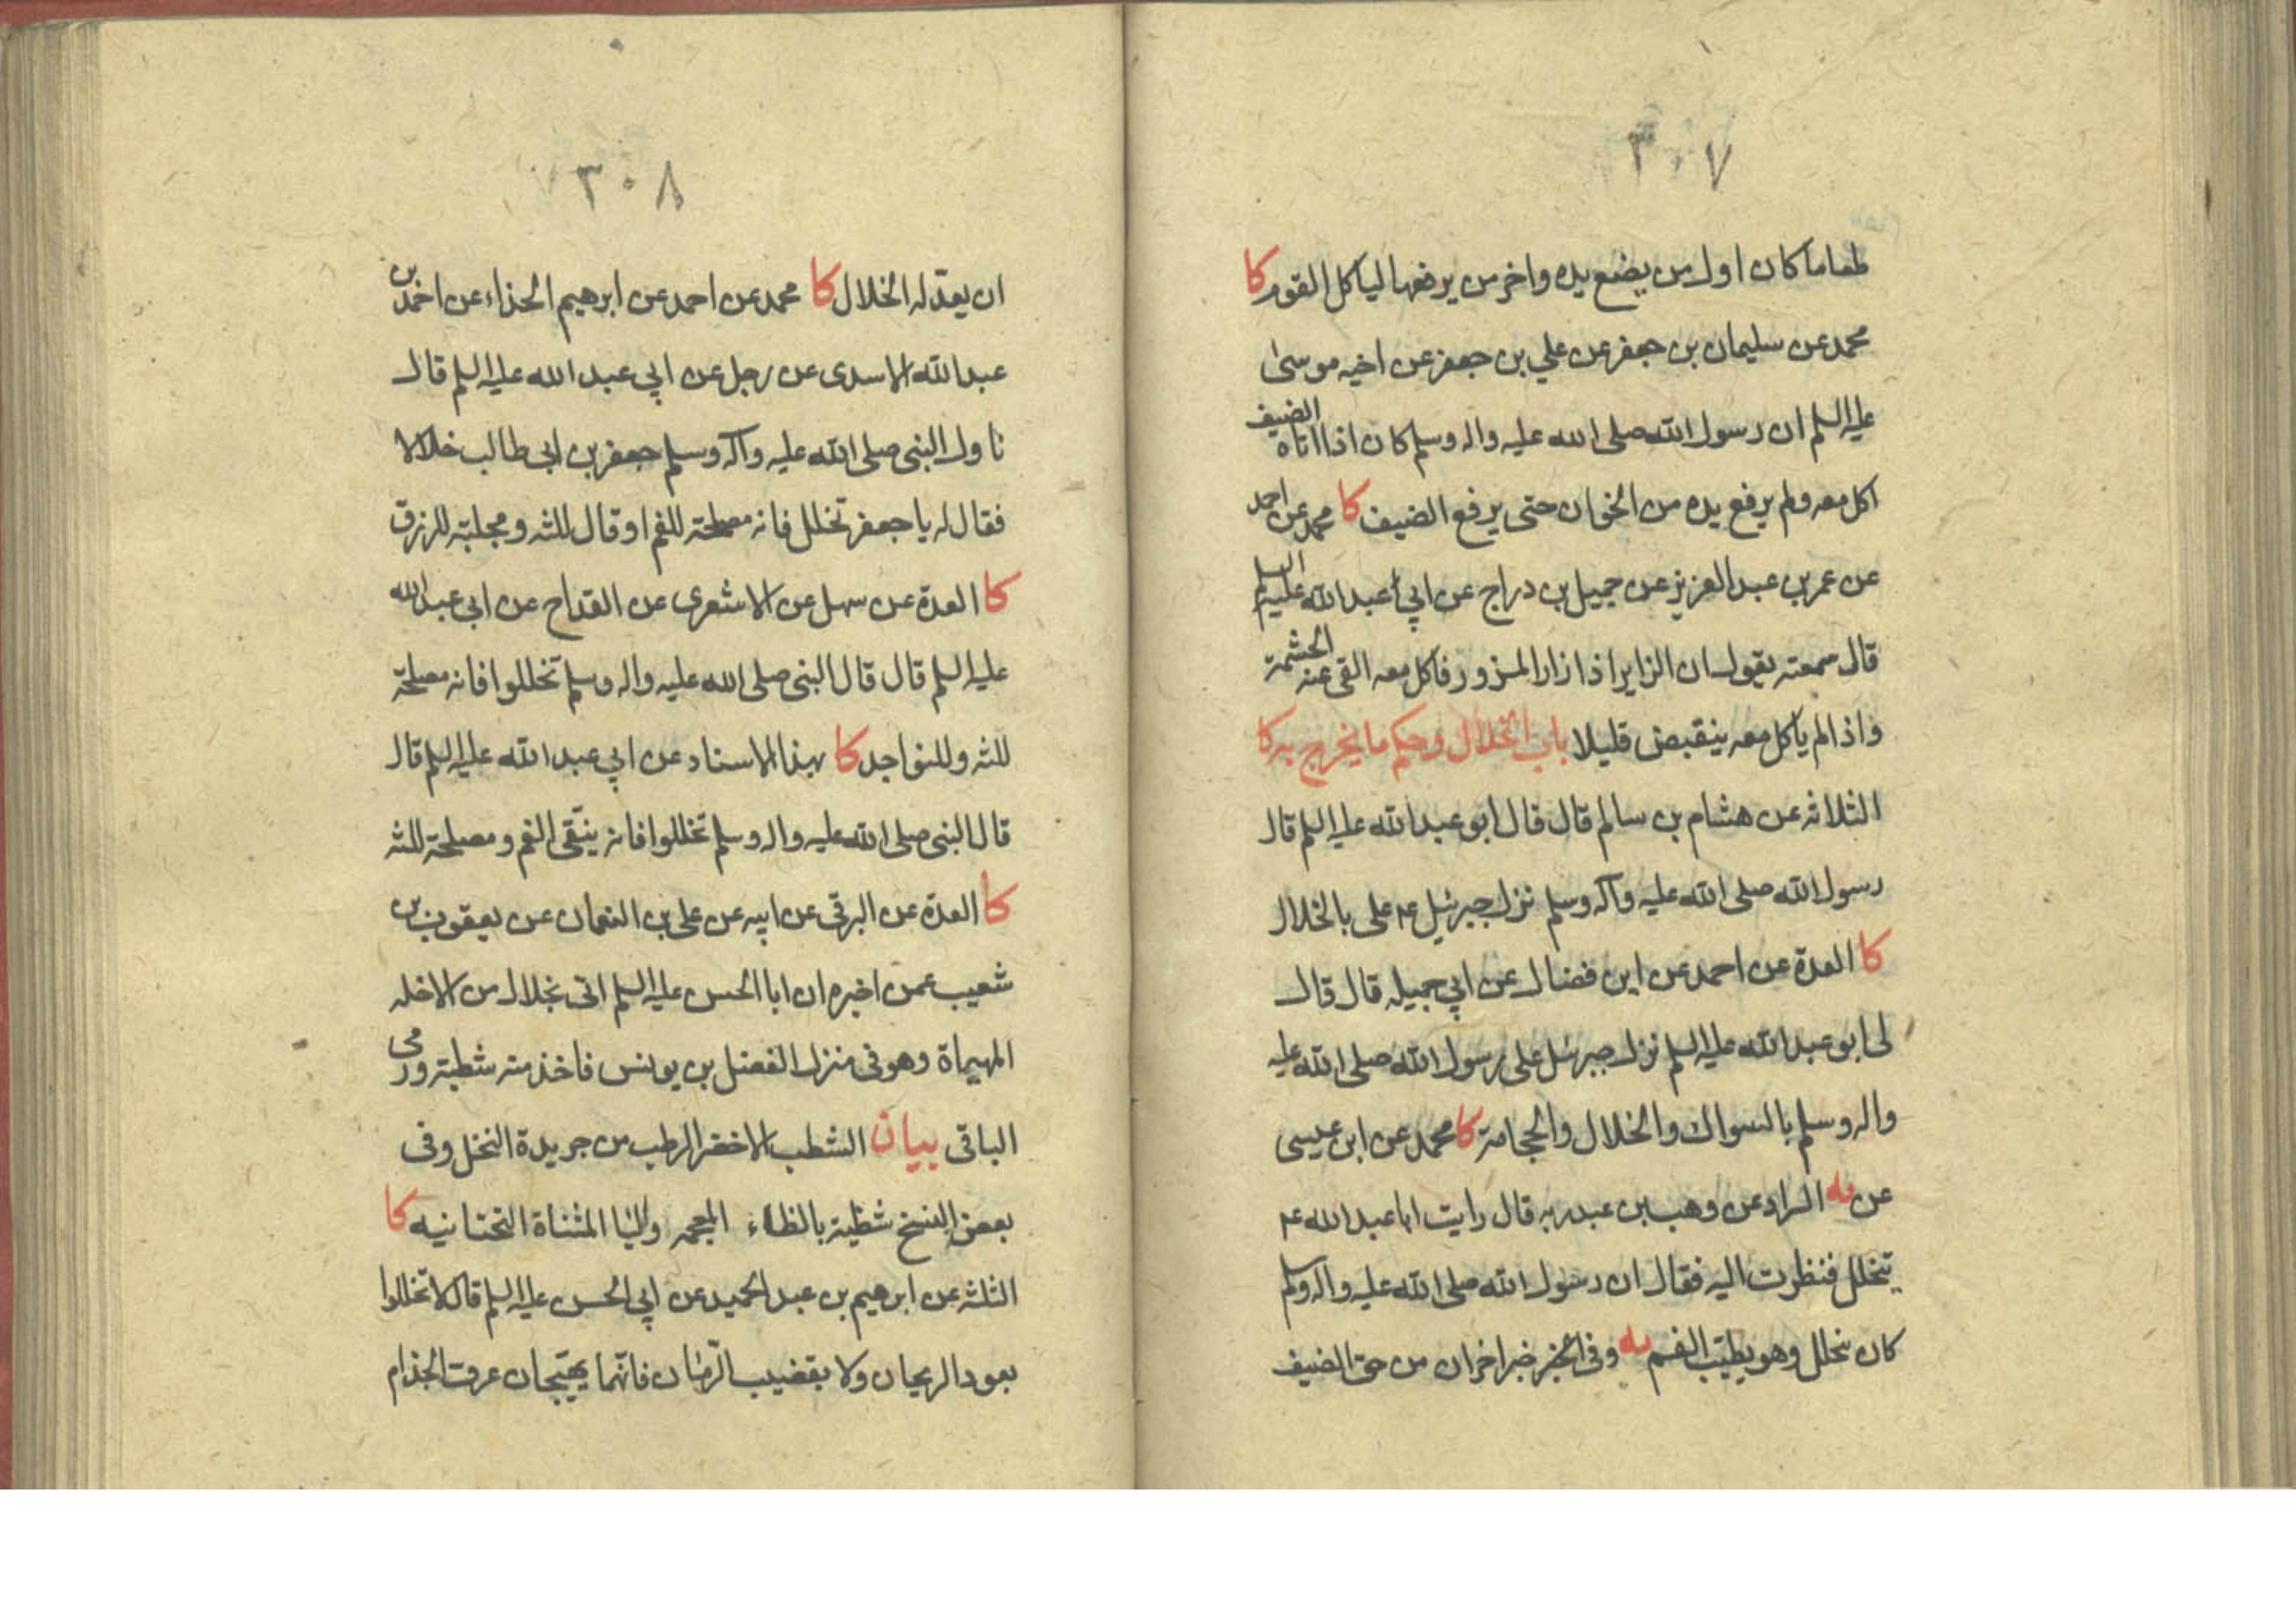 ٣٠٧
طعاما كان اول من يضع يده واخر من يرفعها لياكل القوم كا
محمد عن سليمان بن جعفر عن علي بن جعفر عن اخيه موسى
عليه السلم ان رسول الله صلى الله عليه واله وسلم كان اذا اتاه الضيف
اكل معه ولم يرفع يده من الخوان حتى يرفع الضيف كا محمد عن احمد
عن عمر بن عبد العزيز عن جميل بن دراج عن ابي عبد الله عليه السلم
قال سمعته يقول ان الزاير اذا زار المزور فاكل معه القى عنه الحشمة
واذا لم ياكل معه ينقبض قليلا باب الخلال وحكم ما يخرج به كا
الثلاثه عن هشام بن سالم قال قال ابو عبد الله عليه السلم قال
رسول الله صلى الله عليه وآله وسلم نزل جبرئيل ع على بالخلال
كا العدة عن احمد عن ابن فضال عن ابي جميله قال قال
لى ابو عبد الله عليه السلم نزل جبرئيل على رسول الله صلى الله عليه
واله وسلم بالسواك والخلال والحجامة كا محمد عن ابن عيسى
عن يه السراد عن وهب بن عبد ربه قال رايت ابا عبد الله ع
يتخلل فنظرت اليه فقال ان رسول الله صلى الله عليه واله وسلم
كان يتخلل وهو يطيّب الفم يه وفى خبر اخر ان من حق الضيف
٣٠٨
ان يعدّ له الخلال كا محمد عن احمد عن ابرهيم الحذاء عن احمد بن
عبد الله الاسدى عن رجل عن ابي عبد الله عليه السلم قال
ناول النبى صلى الله عليه وآله وسلم جعفر بن ابى طالب خلالا
فقال له يا جعفر تخلل فانه مصلحة للفم او قال للثه ومجلبة للرزق
كا العدة عن سهل عن الاشعرى عن القداح عن ابى عبد الله
عليه السلم قال قال النبى صلى الله عليه واله وسلم تخللوا فانه مصلحة
للثه وللنواجد كا بهذا الاسناد عن ابي عبد الله عليه السلم قال
قال النبى صلى الله عليه واله وسلم تخللوا فانه ينقى الفم ومصلحة للثه
كا العدة عن البرقى عن ابيه عن على بن النعمان عن يعقوب بن
شعيب عمن اخبره ان ابا الحسن عليه السلم اتى بخلال من الاخله
المهياة وهو فى منزل الفضل بن يونس فاخذ منه شطبة ورمى
الباقى بيان الشطب الاخضر الرطب من جريدة النخل وفى
بعض النسخ شظية بالظاء المعجمه واليا المثناة التحتانيه كا
الثلثه عن ابرهيم بن عبد الحميد عن ابي الحسن عليه السلم قال لا تخللوا
بعود الريحان ولا بقضيب الرّمان فانّهما يهيّجان عرق الجذام